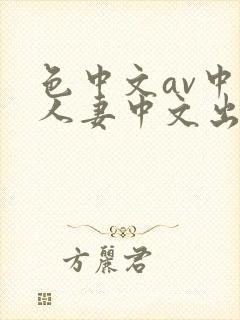 色中文av中
人妻中文出
方麗君